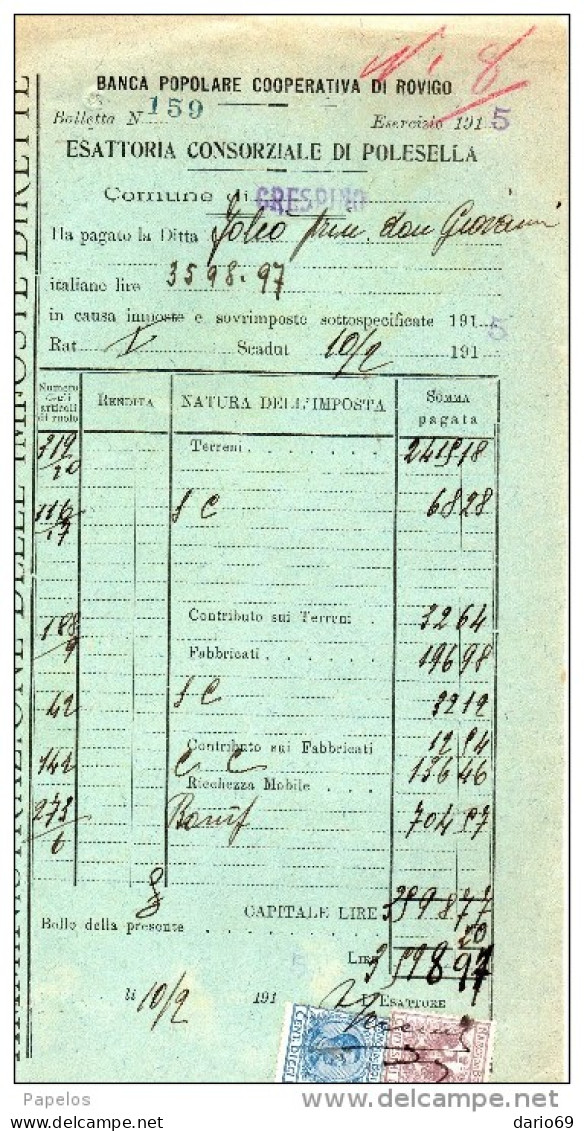 N. 8
BANCA POPOLARE COOPERATIVA DI ROVIGO
Bolletta N 159 Esercizio 1915
ESATTORIA CONSORZIALE DI POLESELLA
Comune di CRESPINO
Ha pagato la Ditta don Giovanni
italiane lire 3598.97
in causa imposte e sovrimposte sottospecificate 1915
Rat I Scadut 10/2 191
Numero degli articoli di ruolo RENDITA NATURA DELL'IMPOSTA SOMMA pagata
319/20 Terreni 2419 18
116/17 S C 68 28
Contributo sui Terreni 32 64
188/9 Fabbricati 196 98
42 S C 32 12
Contributo sui Fabbricati 12 54
142 C C 136 46
Ricchezza Mobile
273/6 Bonif 704 57
CAPITALE LIRE 3598 77
Bollo della presente 20
LIRE 3598 97
li 10/2 191 L'ESATTORE
CENT. DIECI
AMMINISTRAZIONE DELLE IMPOSTE DIRETTE
Papelos
delcampe.net
dario69